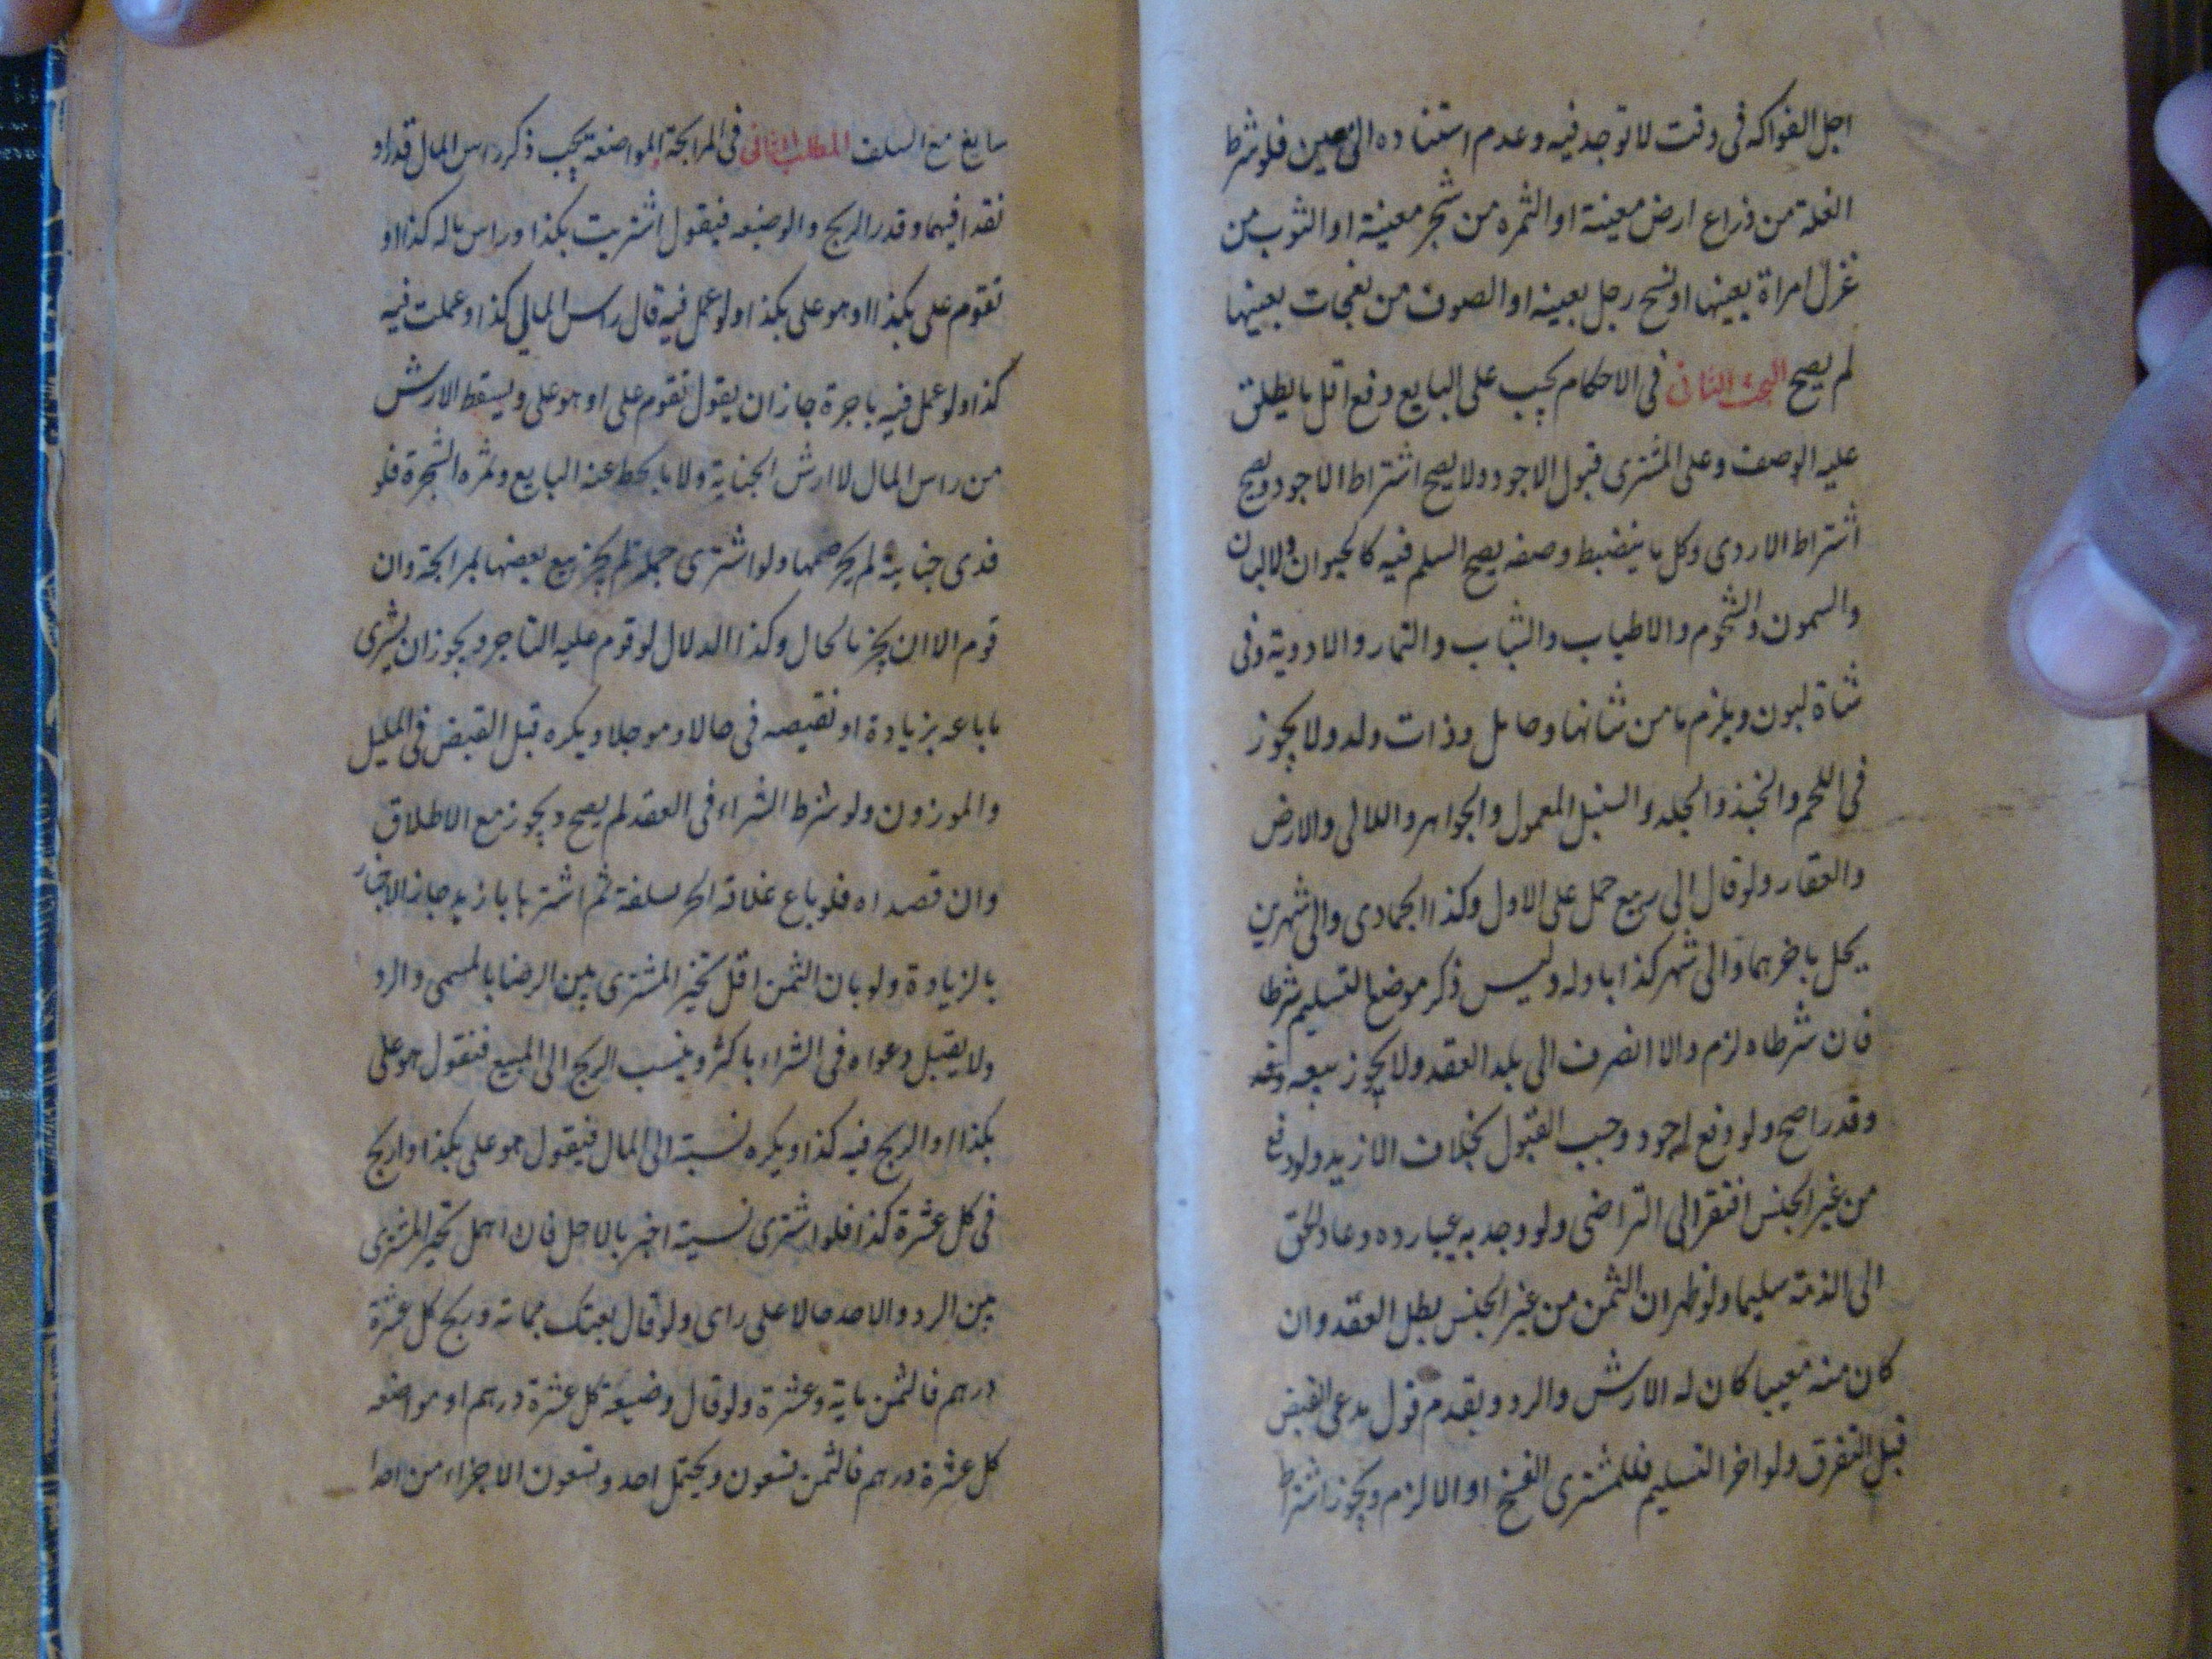 اجل الفواكه فى وقت لا توجد فيه وعدم استناده الى معين فلو شرط
الغلة من زراع ارض معينة او الثمره من شجر معينة او الثوب من
غزل امراة بعينها او نسج رجل بعينه او الصوف من نعجات بعينها
لم يصح البحث الثانى فى الاحكام يجب على البايع دفع اقل ما يطلق
عليه الوصف وعلى المشترى قبول الاجود ولا يصح اشتراط الاجود ويصح
اشتراط الاردى وكل ما ينضبط وصفه يصح السلم فيه كالحيوان والالبان
والسمون والشحوم والاطياب والثياب والثمار والادوية وفى
شاة لبون ويلزم ما من شانها وحامل وذات ولد ولا يجوز
فى اللحم والخبز والجلد والنبل المعمول والجواهر واللالى والارض
والعقار ولو قال الى ربيع حمل على الاول وكذا الجمادى والى شهرين
يحل باخرهما والى شهر كذا باوله وليس ذكر موضع التسليم شرطا
فان شرطاه لزم والا انصرف الى بلد العقد ولا يجوز بيعه وبعد
وقدر اصح ولو دفع اجود وجب القبول بخلاف الازيد ولو دفع
من غير الجنس افتقر الى التراضى ولو وجد به عيبا رده وعاد الحق
الى الذمة سليما ولو ظهر ان الثمن من غير الجنس بطل العقد وان
كان منه معيبا كان له الارش والرد ويقدم قول مدعى القبض
قبل التفرق ولو اخر التسليم فللمشترى الفسخ او الالزم ويجوز اشتراط
سايغ مع السلف المطلب الثانى فى المرابحة والمواضعة يجب ذكر راس المال قدرا و
نقدا فيهما وقدر الربح والوضيعه فيقول اشتريت بكذا او راس ماله كذا او
تقوم على بكذا او هو على بكذا ولو عمل فيه قال راس المالى كذا وعملت فيه
كذا ولو عمل فيه باجرة جاز ان يقول تقوم على او هو على ويسقط الارش
من راس المال لا ارش الجناية ولا ما يحط عنه البايع وثمره الشجرة فلو
فدى جناية لم يجز ضمها ولو اشترى جملة لم يجز بيع بعضها بمرابحة وان
قوم الا ان يخبر بالحال وكذا الدلال لو قوم عليه التاجر ويجوز ان يشرى
ما باعه بزيادة او نقيصه فى حالا و موجلا ويكره قبل القبض فى المليل
والموزون ولو شرط الشراء فى العقد لم يصح ويجوز مع الاطلاق
وان قصداه فلو باع غلامه الحر سلفة ثم اشتراه بازيد جاز الاخبار
بالزيادة ولو بان الثمن اقل تخير المشترى بين الرضا بالمسمى والرد
ولا يقبل دعواه فى الشراء باكثر وينسب الربح الى المبيع فنقول هو على
بكذا او الربح فيه كذا ويكره نسبته الى المال فيقول هو على بكذا واربح
فى كل عشرة كذا فلو اشترى نسيئة اخبر بالاجل فان اهمل تخير المشترى
بين الرد والاخذ حالا على راى ولو قال بعتك بمائة وربح كل عشرة
درهم فالثمن ماية وعشرة ولو قال وضيعة كل عشرة درهم او مواضعه
كل عشرة درهم فالثمن تسعون ويحتمل احد وتسعون الا جزاء من احد